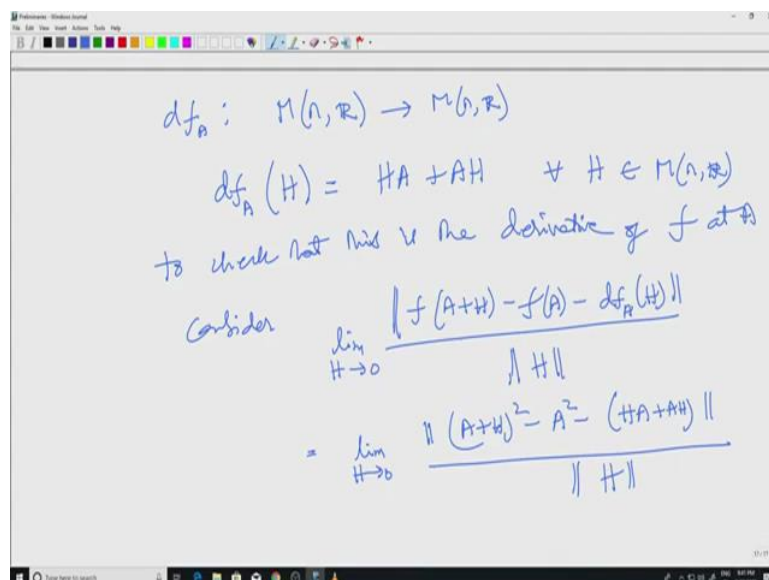 Preliminaries - Windows Journal
File Edit View Insert Actions Tools Help
df_A : M(n, ℝ) → M(n, ℝ)
df_A (H) = HA + AH ∀ H ∈ M(n, ℝ)
to check that this is the derivative of f at A
Consider lim_{H→0} ‖f(A+H) - f(A) - df_A(H)‖ / ‖H‖
= lim_{H→0} ‖(A+H)² - A² - (HA+AH)‖ / ‖H‖
Type here to search